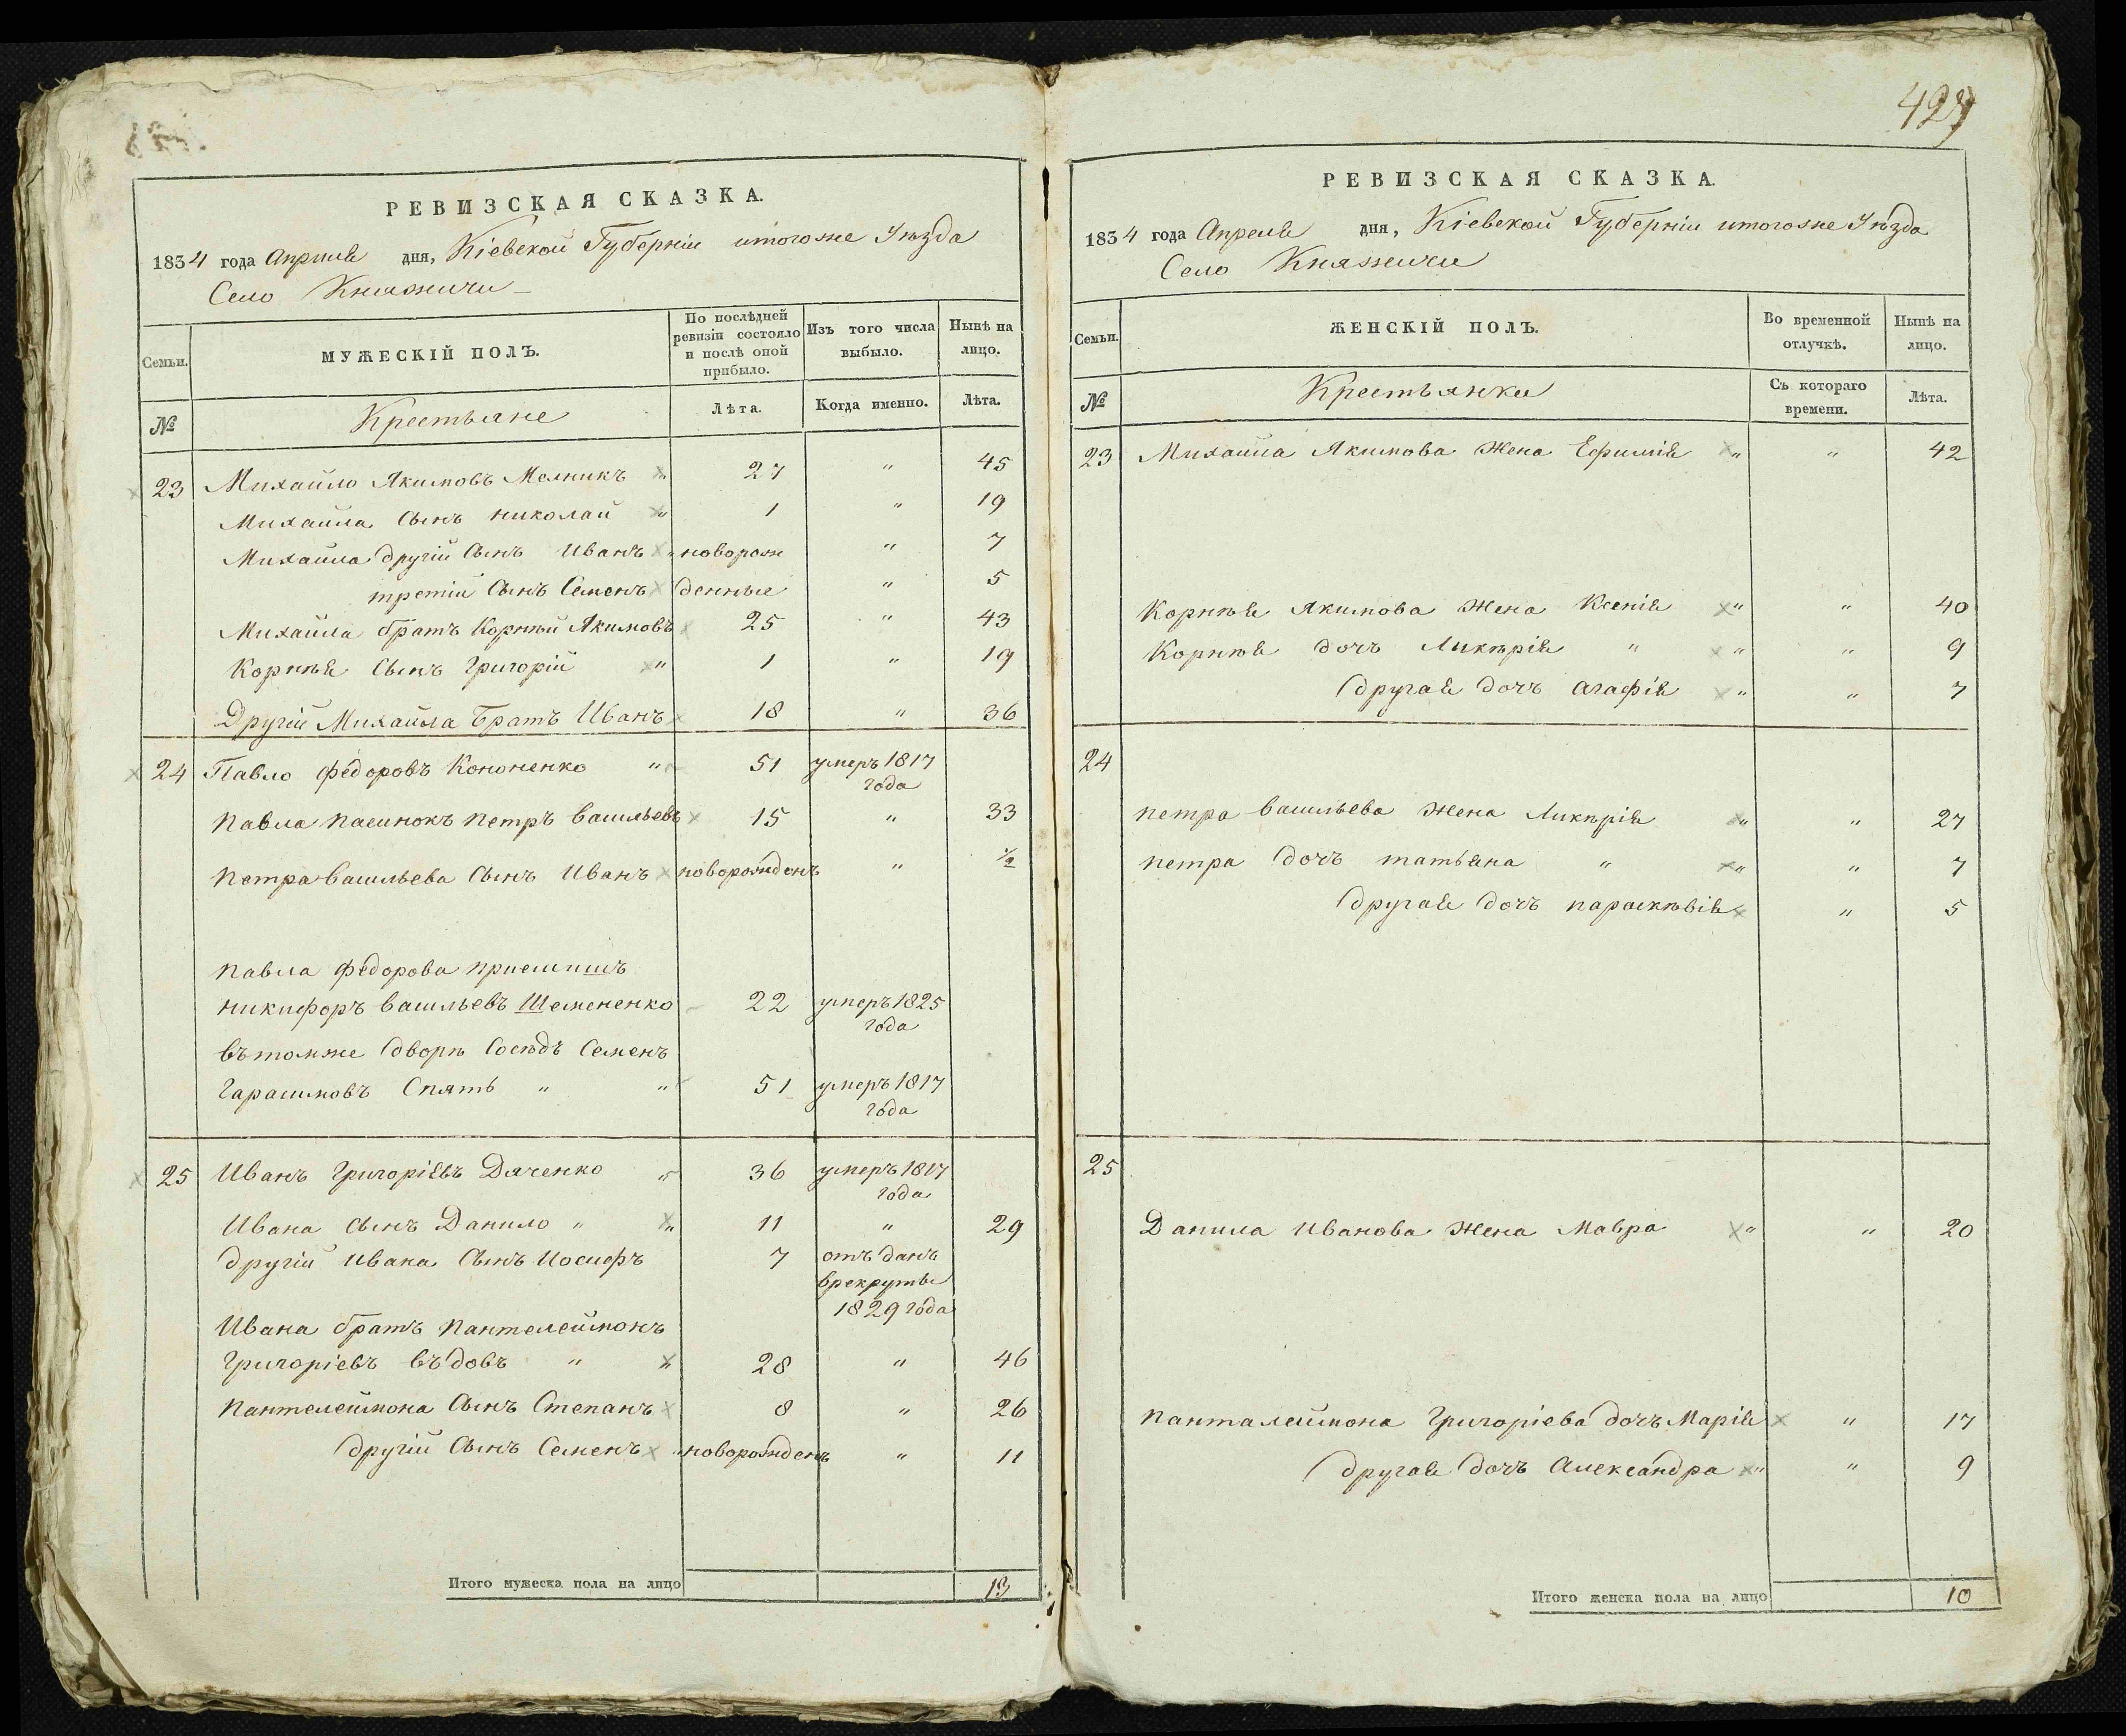 427
РЕВИЗСКАЯ СКАЗКА.
1834 года Априля дня, Кіевской Губерніи итогоже Уѣзда
Село Княжичи
Семьи.
МУЖЕСКІЙ ПОЛЪ.
По послѣдней ревизіи состояло и послѣ оной прибыло.
Изъ того числа выбыло.
Нынѣ на лицо.
№
Крестьяне
Лѣта.
Когда именно.
Лѣта.
23 Михайло Якимовъ Мелникъ " 27 " 45
Михайла Сынъ Николай " 1 " 19
Михайла другій Сынъ Иванъ " новорож " 7
третій Сынъ Семенъ денные " 5
Михайла братъ Корнѣй Якимовъ 25 " 43
Корнѣя Сынъ Григорій " 1 " 19
Другій Михайла Братъ Иванъ 18 " 36
24 Павло Федоровъ Кононенко " 51 умеръ 1817
года
Павла пасинокъ Петръ Васильевъ 15 " 33
Петра Васильева Сынъ Иванъ новорожденъ " 1/2
Павла Федорова приемишъ
Никифоръ Васильевъ Шемененко 22 умеръ 1825
года
Въ томже дворѣ Сосѣдъ Семенъ
Гарасимовъ Спять " " 51 умеръ 1817
года
25 Иванъ Григоріевъ Дяченко " 36 умеръ 1817
года
Ивана Сынъ Данило " " 11 " 29
другій Ивана Сынъ Иосифъ 7 отъ данъ
врекруты
1829 года
Ивана братъ Пантелеймонъ
Григоріевъ въдовъ " " 28 " 46
Пантелеймона Сынъ Степанъ 8 " 26
другій Сынъ Семенъ новорожденъ " 11
Итого мужеска пола на лицо 13
РЕВИЗСКАЯ СКАЗКА.
1834 года Апреля дня, Кіевской Губерніи итогоже Уѣзда
Село Княжичи
Семьи.
ЖЕНСКІЙ ПОЛЪ.
Во временной отлучкѣ.
Нынѣ на лицо.
№
Крестьянки
Съ котораго времени.
Лѣта.
23 Михайла Якимова жена Ефимія " " 42
Корнѣя Якимова жена Ксенія " " 40
Корнѣя дочъ Ликѣрія " " " 9
другая дочъ Агафія " " 7
24
Петра Васильева жена Ликѣрія " " 27
Петра дочъ татьяна " " " 7
другая дочъ параскѣвія " 5
25
Данила Иванова жена Мавра " " 20
Панталеймона Григоріева дочъ Марія " 17
другая дочъ Александра " " 9
Итого женска пола на лицо 10